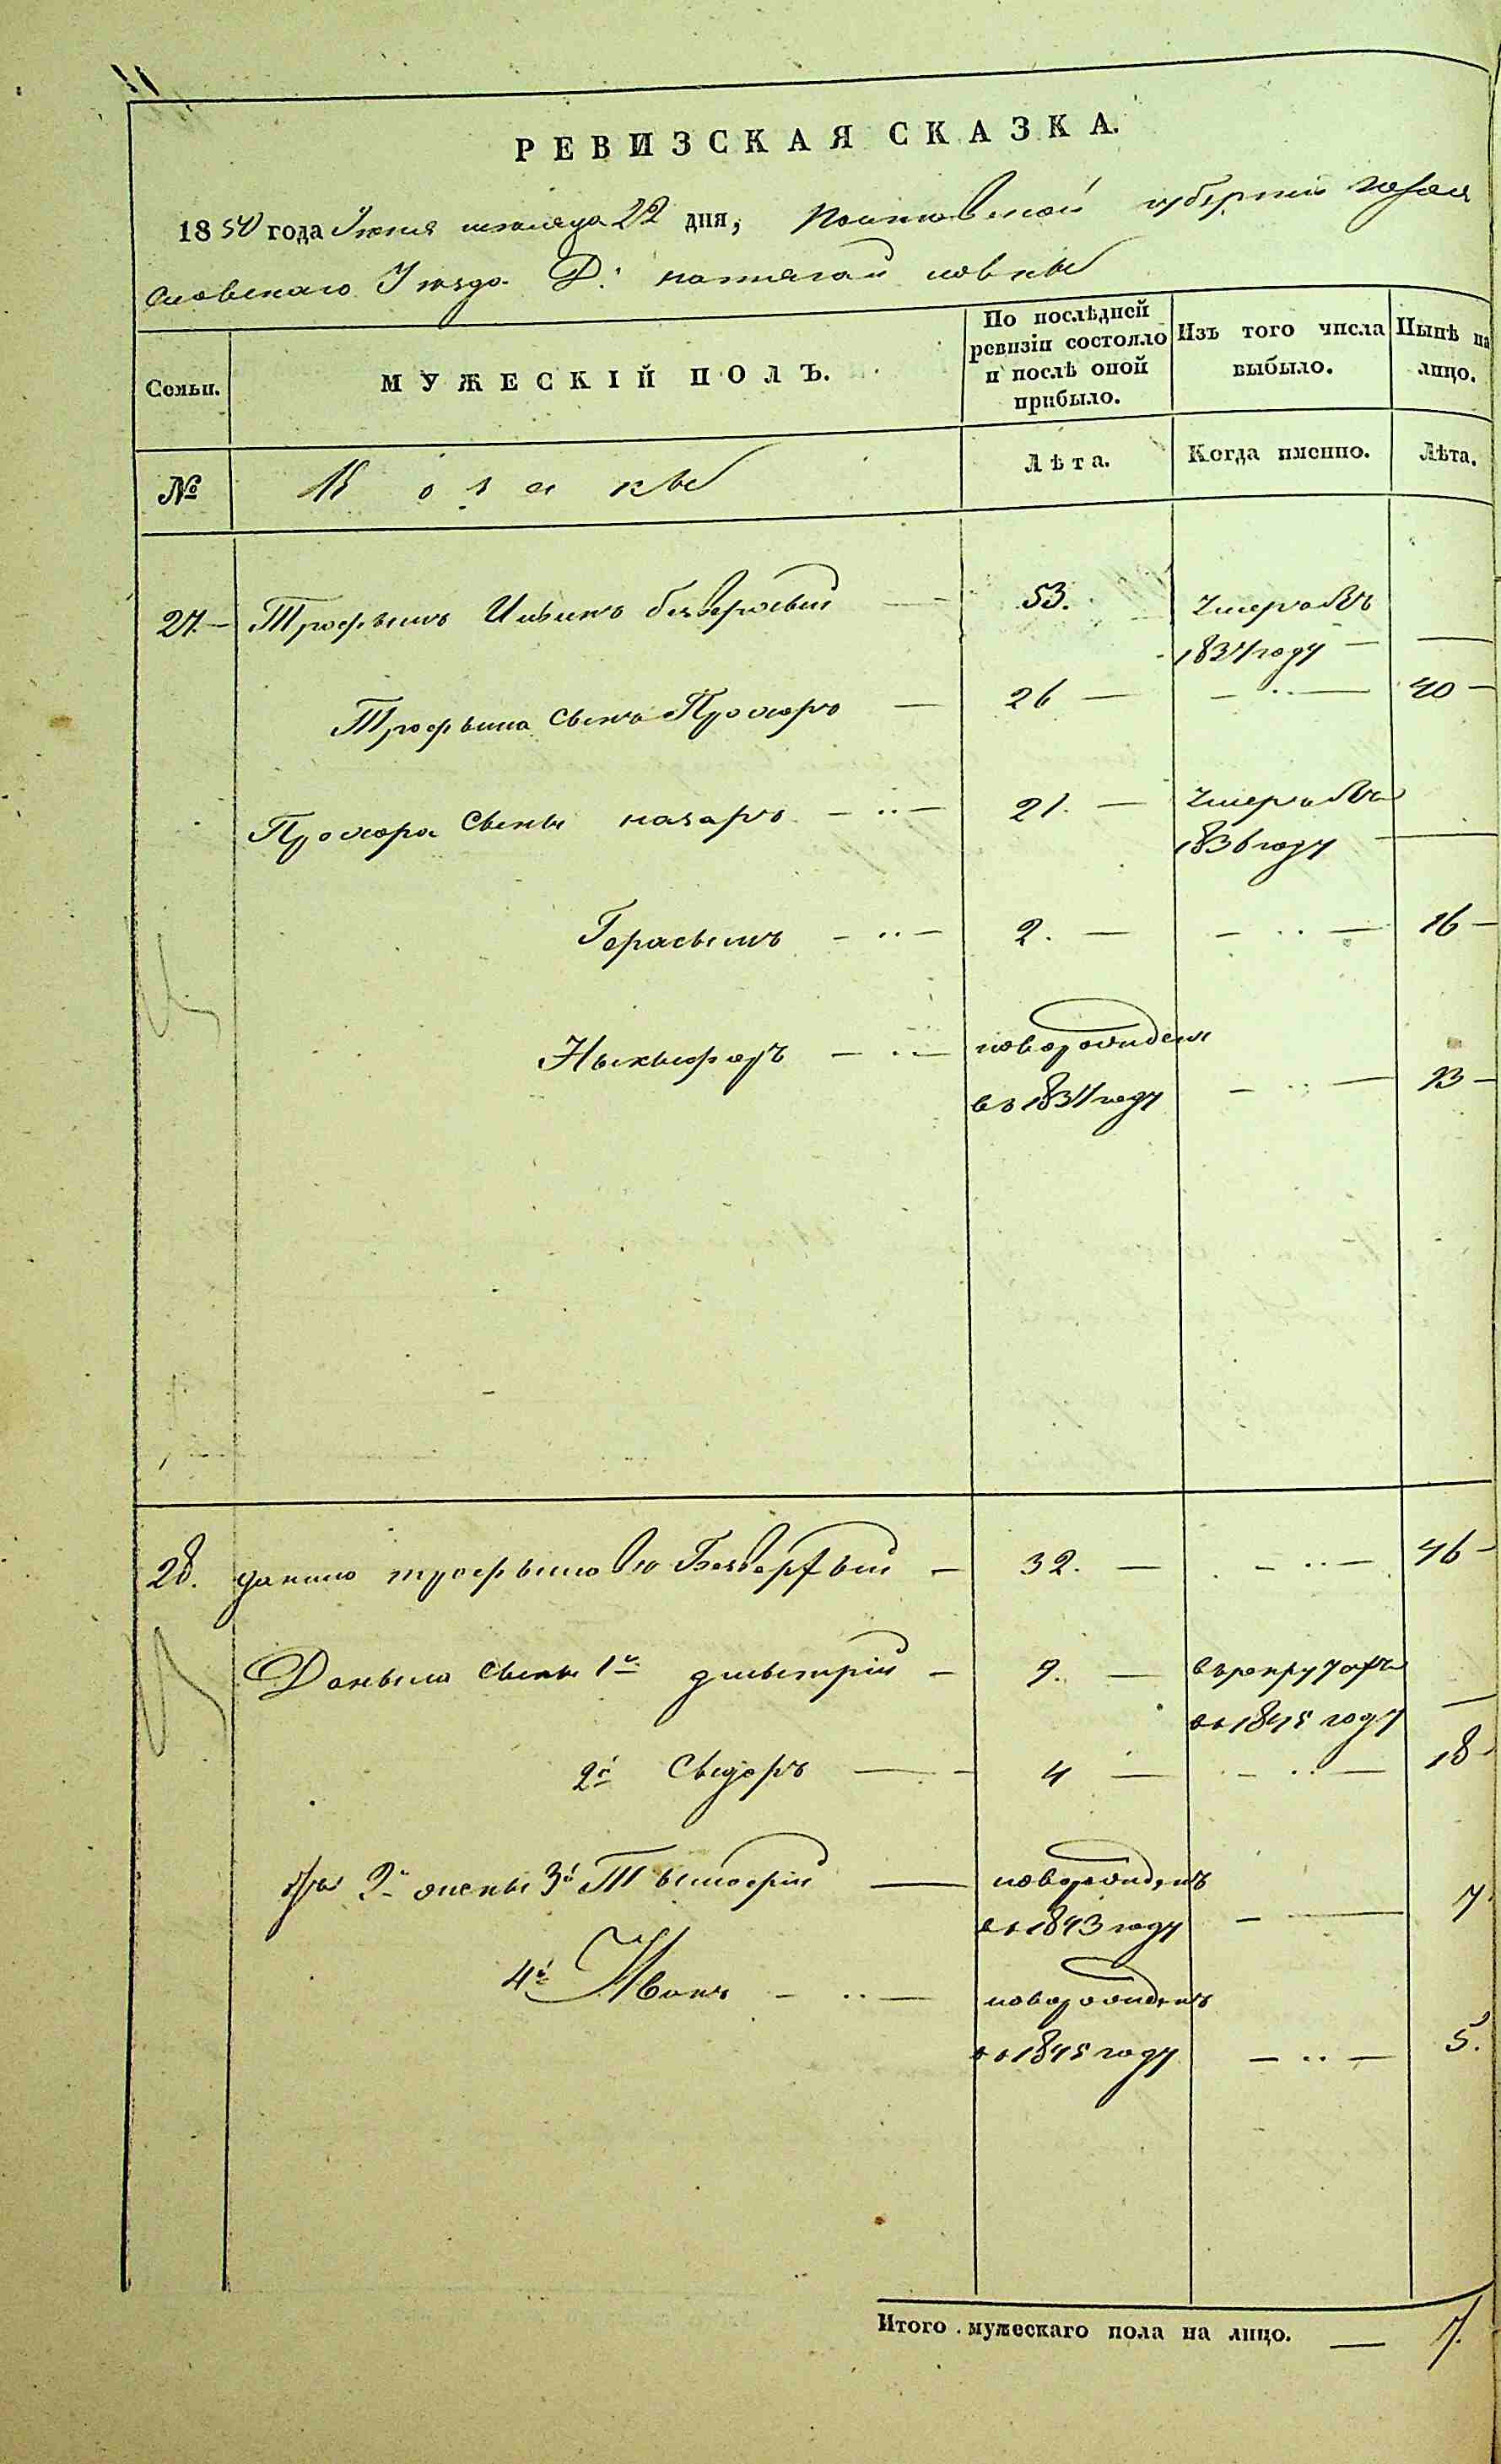 РЕВИЗСКАЯ СКАЗКА.
1850 года Июня месяца 22 дня, Полтавской губерніи
Уезда Д:
Семьи.
МУЖЕСКІЙ ПОЛЪ.
По послѣдней ревизіи состояло и послѣ оной прибыло.
Изъ того числа выбыло.
Нынѣ на лицо.
№
Козакы
Лѣта.
Когда именно.
Лѣта.
27. Трофымъ 53. Умеръ въ
1834 году
Трофыма сынъ Прохоръ 26 40
Прохора сыны назаръ 21. Умеръ въ
1836 году
Герасымъ 2. 16
Ныкыфоръ новорожденъ
въ 1837 году 13
28. данило трофымовъ 32. 46
Даныла сыны 1й дмытрій 9. въ рекрутахъ
въ 1845 году
2й Сыдоръ 4 18
2й жены 3й Тымофій новорожденъ
въ 1843 году 7
4й Иванъ новорожденъ
въ 1845 году 5.
Итого мужескаго пола на лицо. 7.